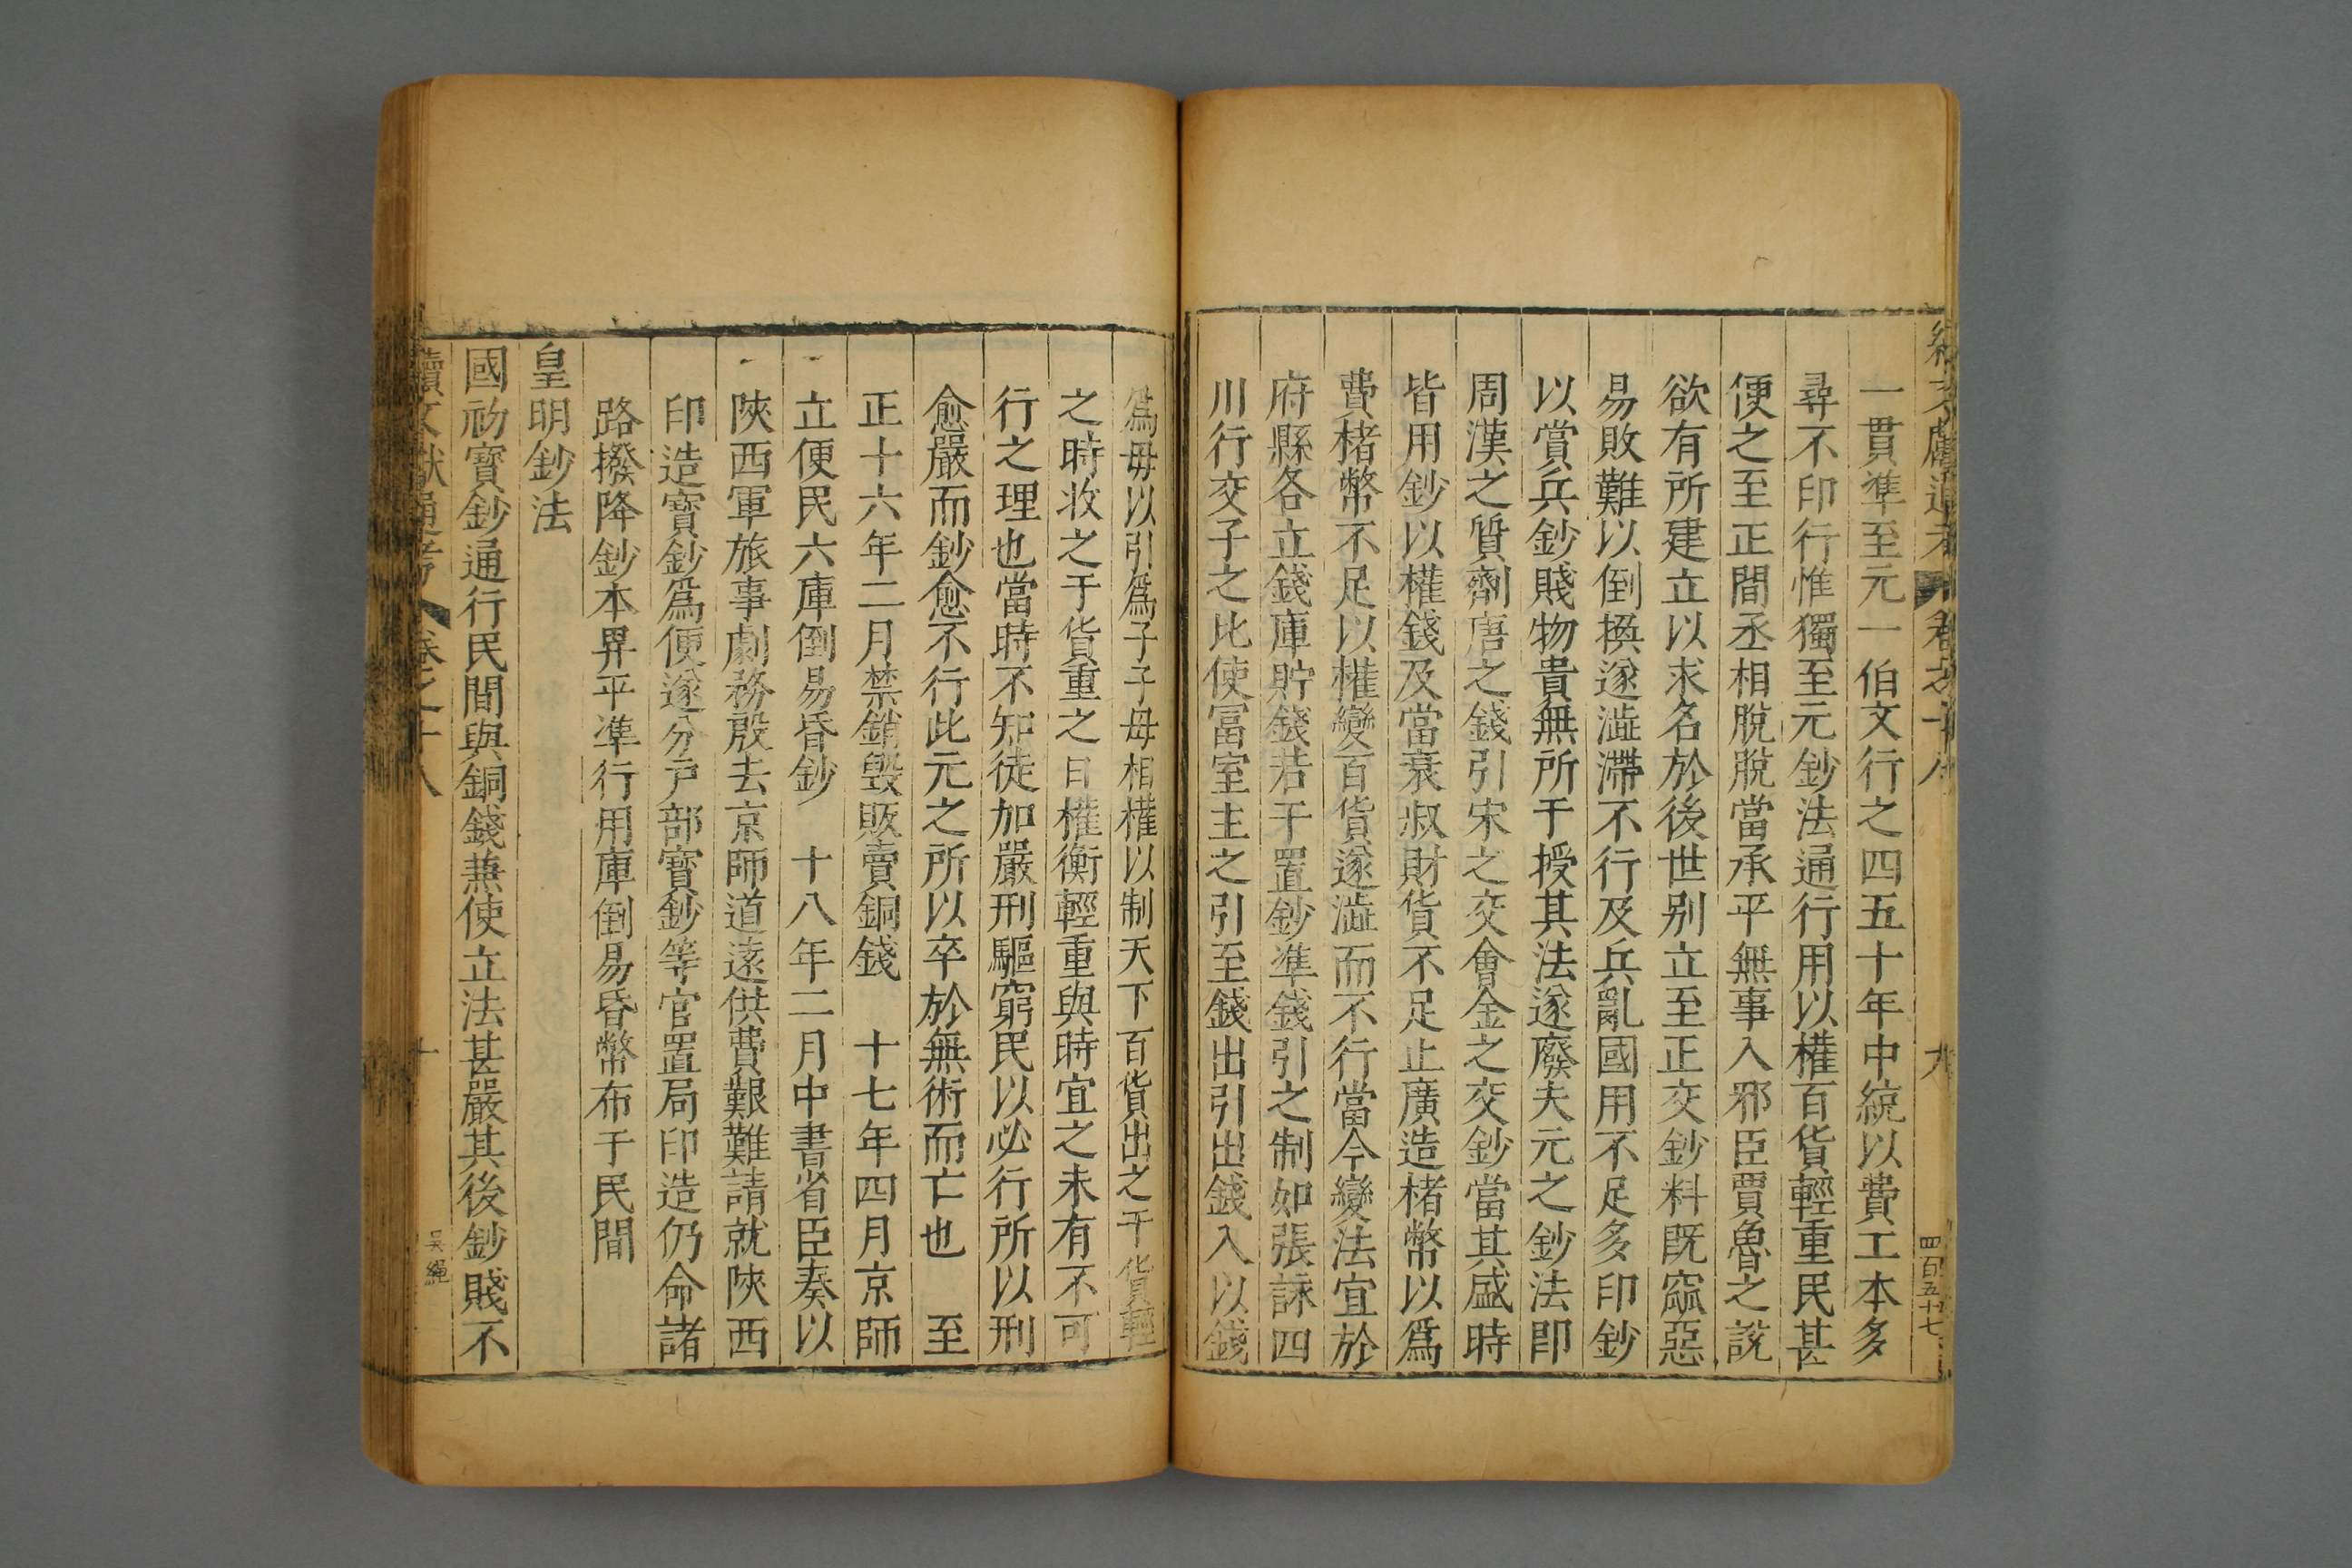 一貫準至元一伯文行之四五十年中統以費工本多
尋不印行惟獨至元鈔法通行用以權百貨輕重民甚
便之至正間丞相脫脫當承平無事入邪臣賈魯之說
欲有所建立以求名於後世别立至正交鈔料既窳惡
易敗難以倒換遂澁滯不行及兵亂國用不足多印鈔
以賞兵鈔賤物貴無所于授其法遂廢夫元之鈔法即
周漢之質劑唐之錢引宋之交會金之交鈔當其盛時
皆用鈔以權錢及當衰叔財貨不足止廣造楮幣以爲
費楮幣不足以權變百貨遂澁而不行當今變法宜於
府縣各立錢庫貯錢若干置鈔準錢引之制如張詠四
川行交子之比使冨室主之引至錢出引出錢入以錢
爲母以引爲子子母相權以制天下百貨出之于貨輕
之時收之于貨重之日權衡輕重與時宜之未有不可
行之理也當時不知徒加嚴刑驅窮民以必行所以刑
愈嚴而鈔愈不行此元之所以卒於無術而亡也　至
正十六年二月禁銷毁販賣銅錢　十七年四月京師
立便民六庫倒易昏鈔　十八年二月中書省臣奏以
陝西軍旅事劇務殷去京師道遠供費艱難請就陝西
印造寳鈔爲便遂分户部寳鈔等官置局印造仍命諸
路撥降鈔本畀平準行用庫倒易昏幣布于民間
皇明鈔法
國初寳鈔通行民間與銅錢兼使立法甚嚴其後鈔賤不
續文獻通考 卷之十八 十 吳繩